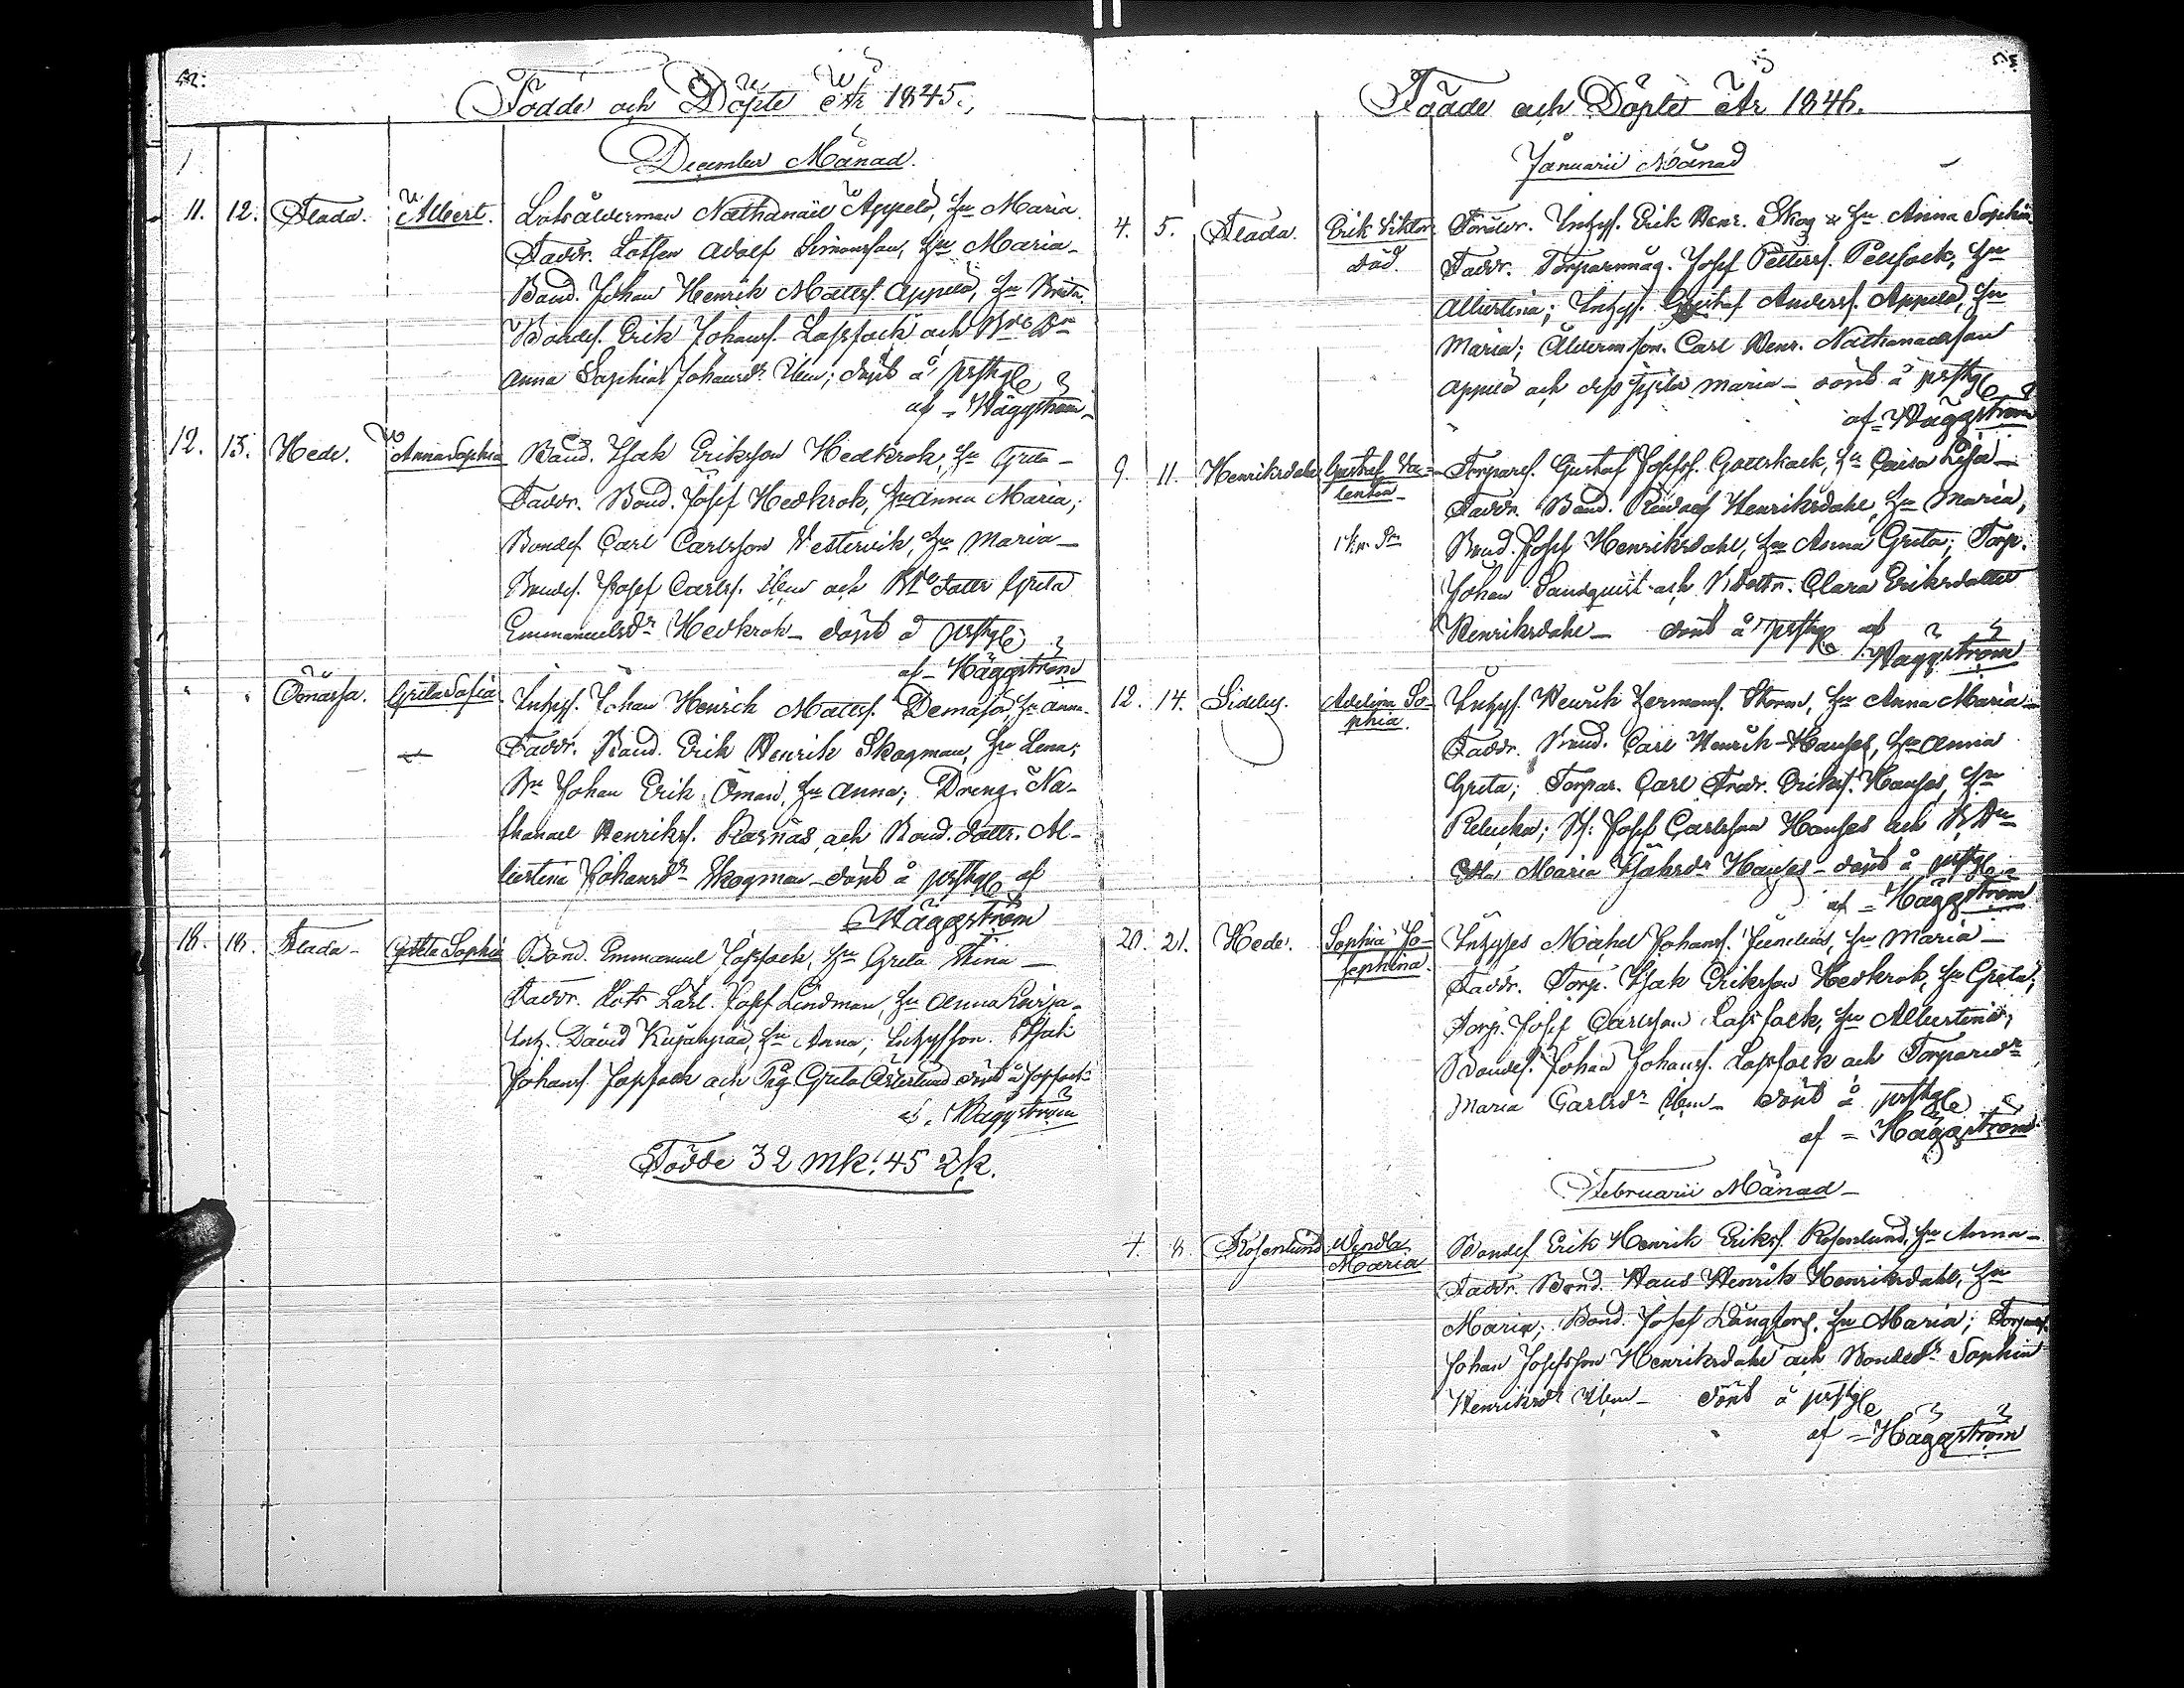 52.
Födde och Döpte År 1845.
December Månad.
11. 12. Flada. Albert. Lotsålderman Nathanäel Appelö, Hu Maria.
Faddr. Lotsen Adolf Simonsson, Hu Maria –
Bond. Johan Henrik Mattss. Appelö, Hu Brita.
Bondes. Erik Johanss. Lassfack och Be Dr
Anna Sophia Johansdr Ibm; döpt å prstgl
af – Häggström
12. 13. Hede. Anna Sophia Bond. Isak Eriksson Hedkrok, Hu Greta –
Faddr. Bond. Josef Hedkrok, Hu Anna Maria;
Bondes. Carl Carlsson Westervik, Hu Maria –
Bondes. Josef Carlss. Ibm och Be dottr Greta
Emmanuelsdr Hedkrok – döpt å prstgl
af – Häggström
" " Greta Sofia Inhyss. Johan Henrik Mattss. Demasö, Hu Anna.
Faddr. Bond. Erik Henrik Skogman, Hu Lena;
Bn Johan Erik Öman, Hu Anna; Dreng. Na-
thanael Henrikss. och Bond. dottr. Al-
bertina Johansdr Skogman – döpt å prstgl af
Häggström
18. 18. Flada – Greta Sophia Bond. Emmanuel Jossfack, Hu Greta Stina –
Faddr. Lots Lärl. Josef Lindman, Hu Anna
Inh. David Hu Anna; Inhysson. Isak
Johanss. Jossfack och Pig. Greta Österlund döpt å Jossfack
af – Häggström
Födde 32 mk. 45 qk.
Födde och Döpte År 1846.
Januarii Månad
4. 5. Flada. Erik Viktor Föräldr. Inhyss. Erik Henr. Skog & Hu Anna Sophia
död. Faddr. Torparmåg. Josef Petterss. Pellfack, Hu
Albertina; Inhyss. Gustaf Anderss. Appelö, Hu
Maria; Ålderm.son. Carl Henr. Nathanaelsson
Appelö och dess syster Maria – döpt å prstgl
af – Häggström
9. 11. Henriksdahl Gustaf Va- Torpares. Gustaf Josefss. Gottskack, Hu Caisa Lisa –
lentin – Faddr. Bond. Henriksdahl, Hu Maria,
Bond. Josef Henriksdahl, Hu Anna Greta; Torp.
Johan Sandquist och dottr. Clara Eriksdotter
Henriksdahl – döpt å prstgl af
Häggström
12. 14. Sideby. Adelina So- Inhyss. Henrik Hermanss. Storm, Hu Anna Maria –
phia. Faddr. Bond. Carl Henrik Hanses, Hu Anna
Greta; Torpar. Carl Fredr. Erikss. Hanses, Hu
Rebecka; Josef Carlsson Hanses och B Dr
Maria Isaksdr Hanses – döpt å prstgl
af – Häggström
20. 21. Hede. Sophia Jo- Inhyses Michel Johanss. Junelius, Hu Maria –
sephina. Faddr. Torp. Isak Eriksson Hedkrok, Hu Greta;
Torp. Josef Carlsson Lassfack, Hu Albertina;
Bondes. Johan Johanss. Lassfack och Torparedr
Maria Carlsdr Ibm – döpt å prstgl
af – Häggström
Februarii Månad –
7. 8. Rosenlund Wendla Bondes. Erik Henrik Erikss. Rosenlund, Hu Anna –
Maria Faddr. Bond. Hans Henrik Henriksdahl, Hu
Maria; Bond. Josef Långfors, Hu Maria; Torpares.
Johan Josefsson Henriksdahl och Bondedr Sophia
Henriksdr Ibm – döpt å prstgl
af – Häggström